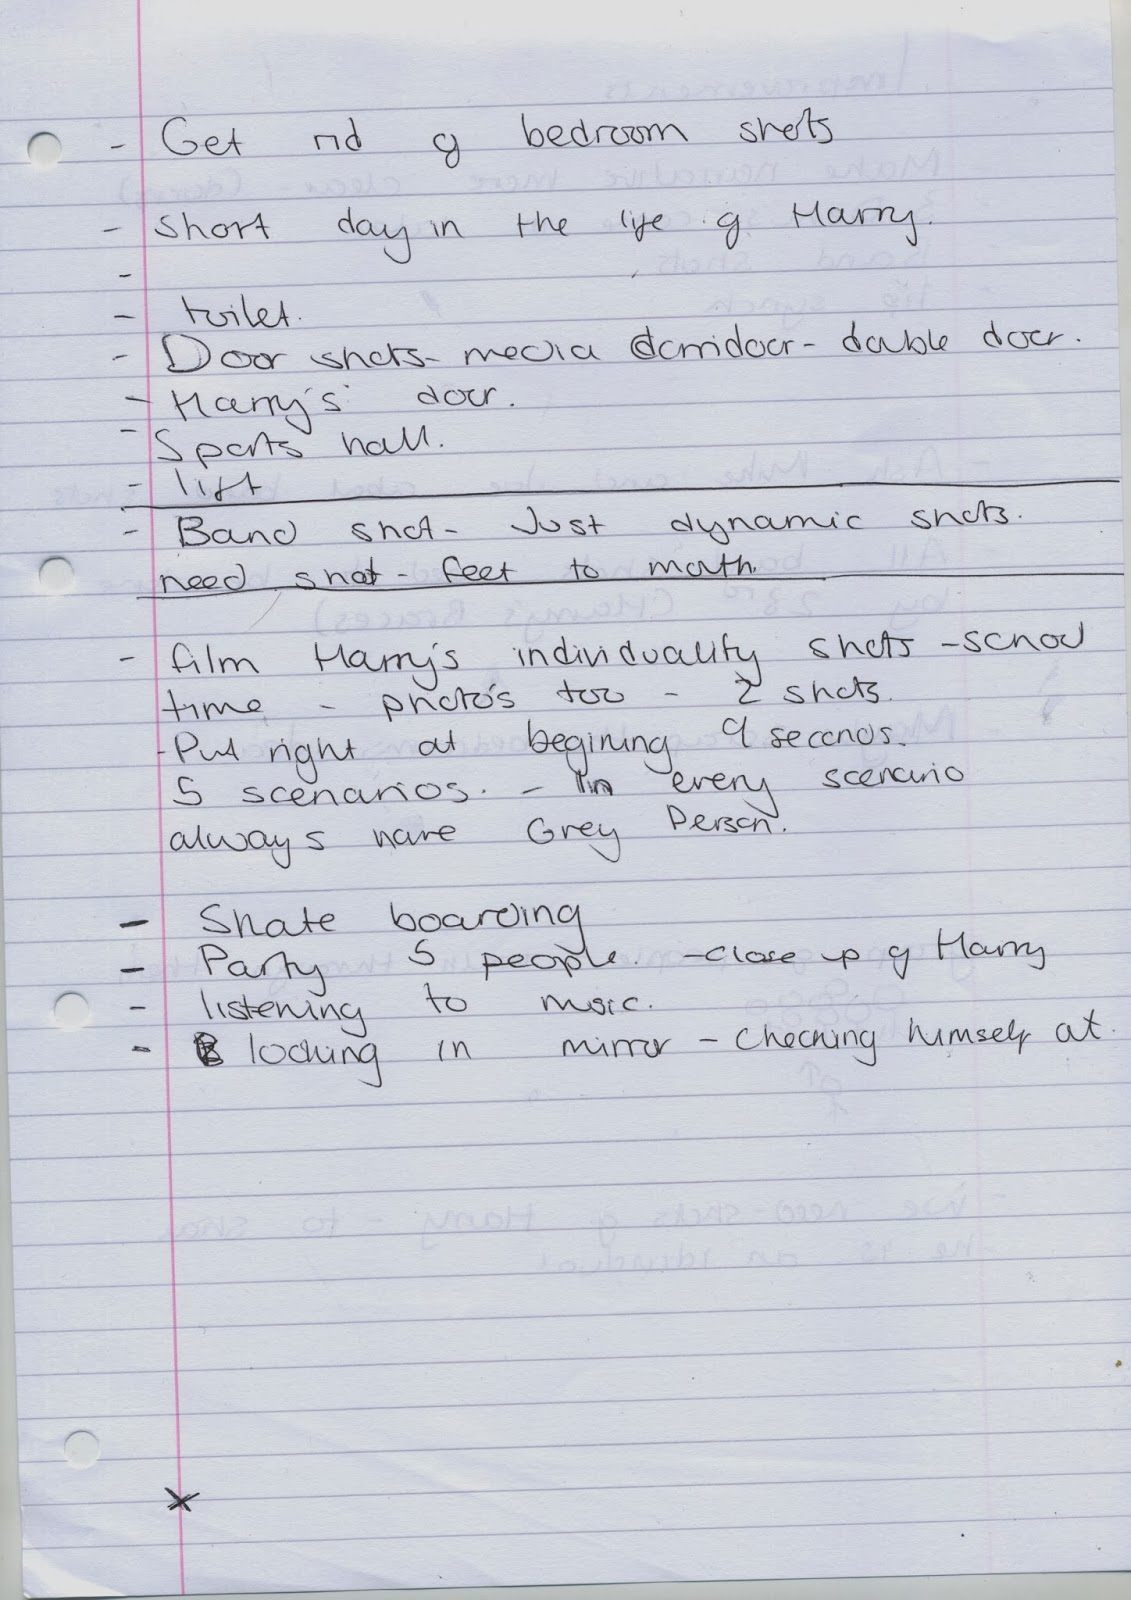 - Get rid of bedroom shots
- short day in the life of Harry.
-
- toilet.
- Door shots - media corridoor - double door.
- Harry's door.
- Sports hall.
- lift
- Band shot - Just dynamic shots.
need shot - feet to mouth.
- film Harry's individuality shots - school
time - photo's too - 2 shots.
- Put right at begining 9 seconds.
5 scenarios. - In every scenario
always have Grey Person.
- Skate boarding
- Party 5 people. - close up of Harry
- listening to music.
- looking in mirror - checking himself at.